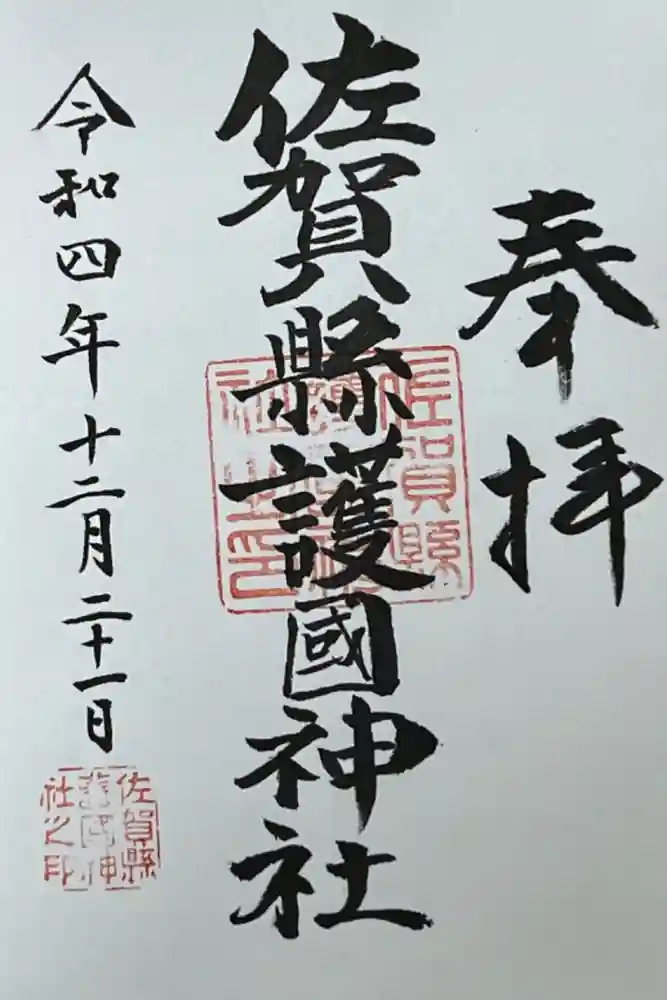 奉拝
佐賀縣護國神社
令和四年十二月二十一日
佐賀縣
護國神
社之印
佐賀縣
護國神
社之印